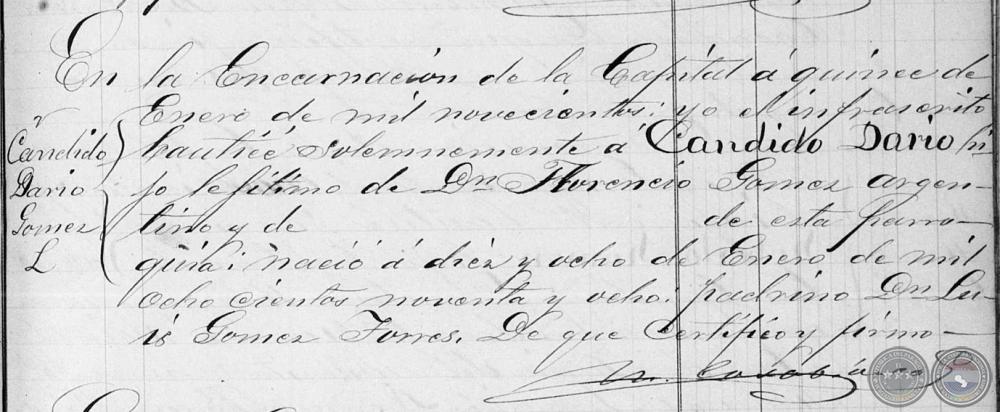 En la Encarnación de la Capital á quince de
Enero de mil novecientos: yo el infrascrito
bauticé solemnemente á Candido Dario hi-
jo lejítimo de Dn Florencio Gomez argen-
tino y de de esta parro-
quia: nació á diéz y ocho de Enero de mil
ocho cientos noventa y ocho: padrino Dn Lu-
is Gomez Torres. De que certifico y firmo-
Candido
Dario
Gomez
L